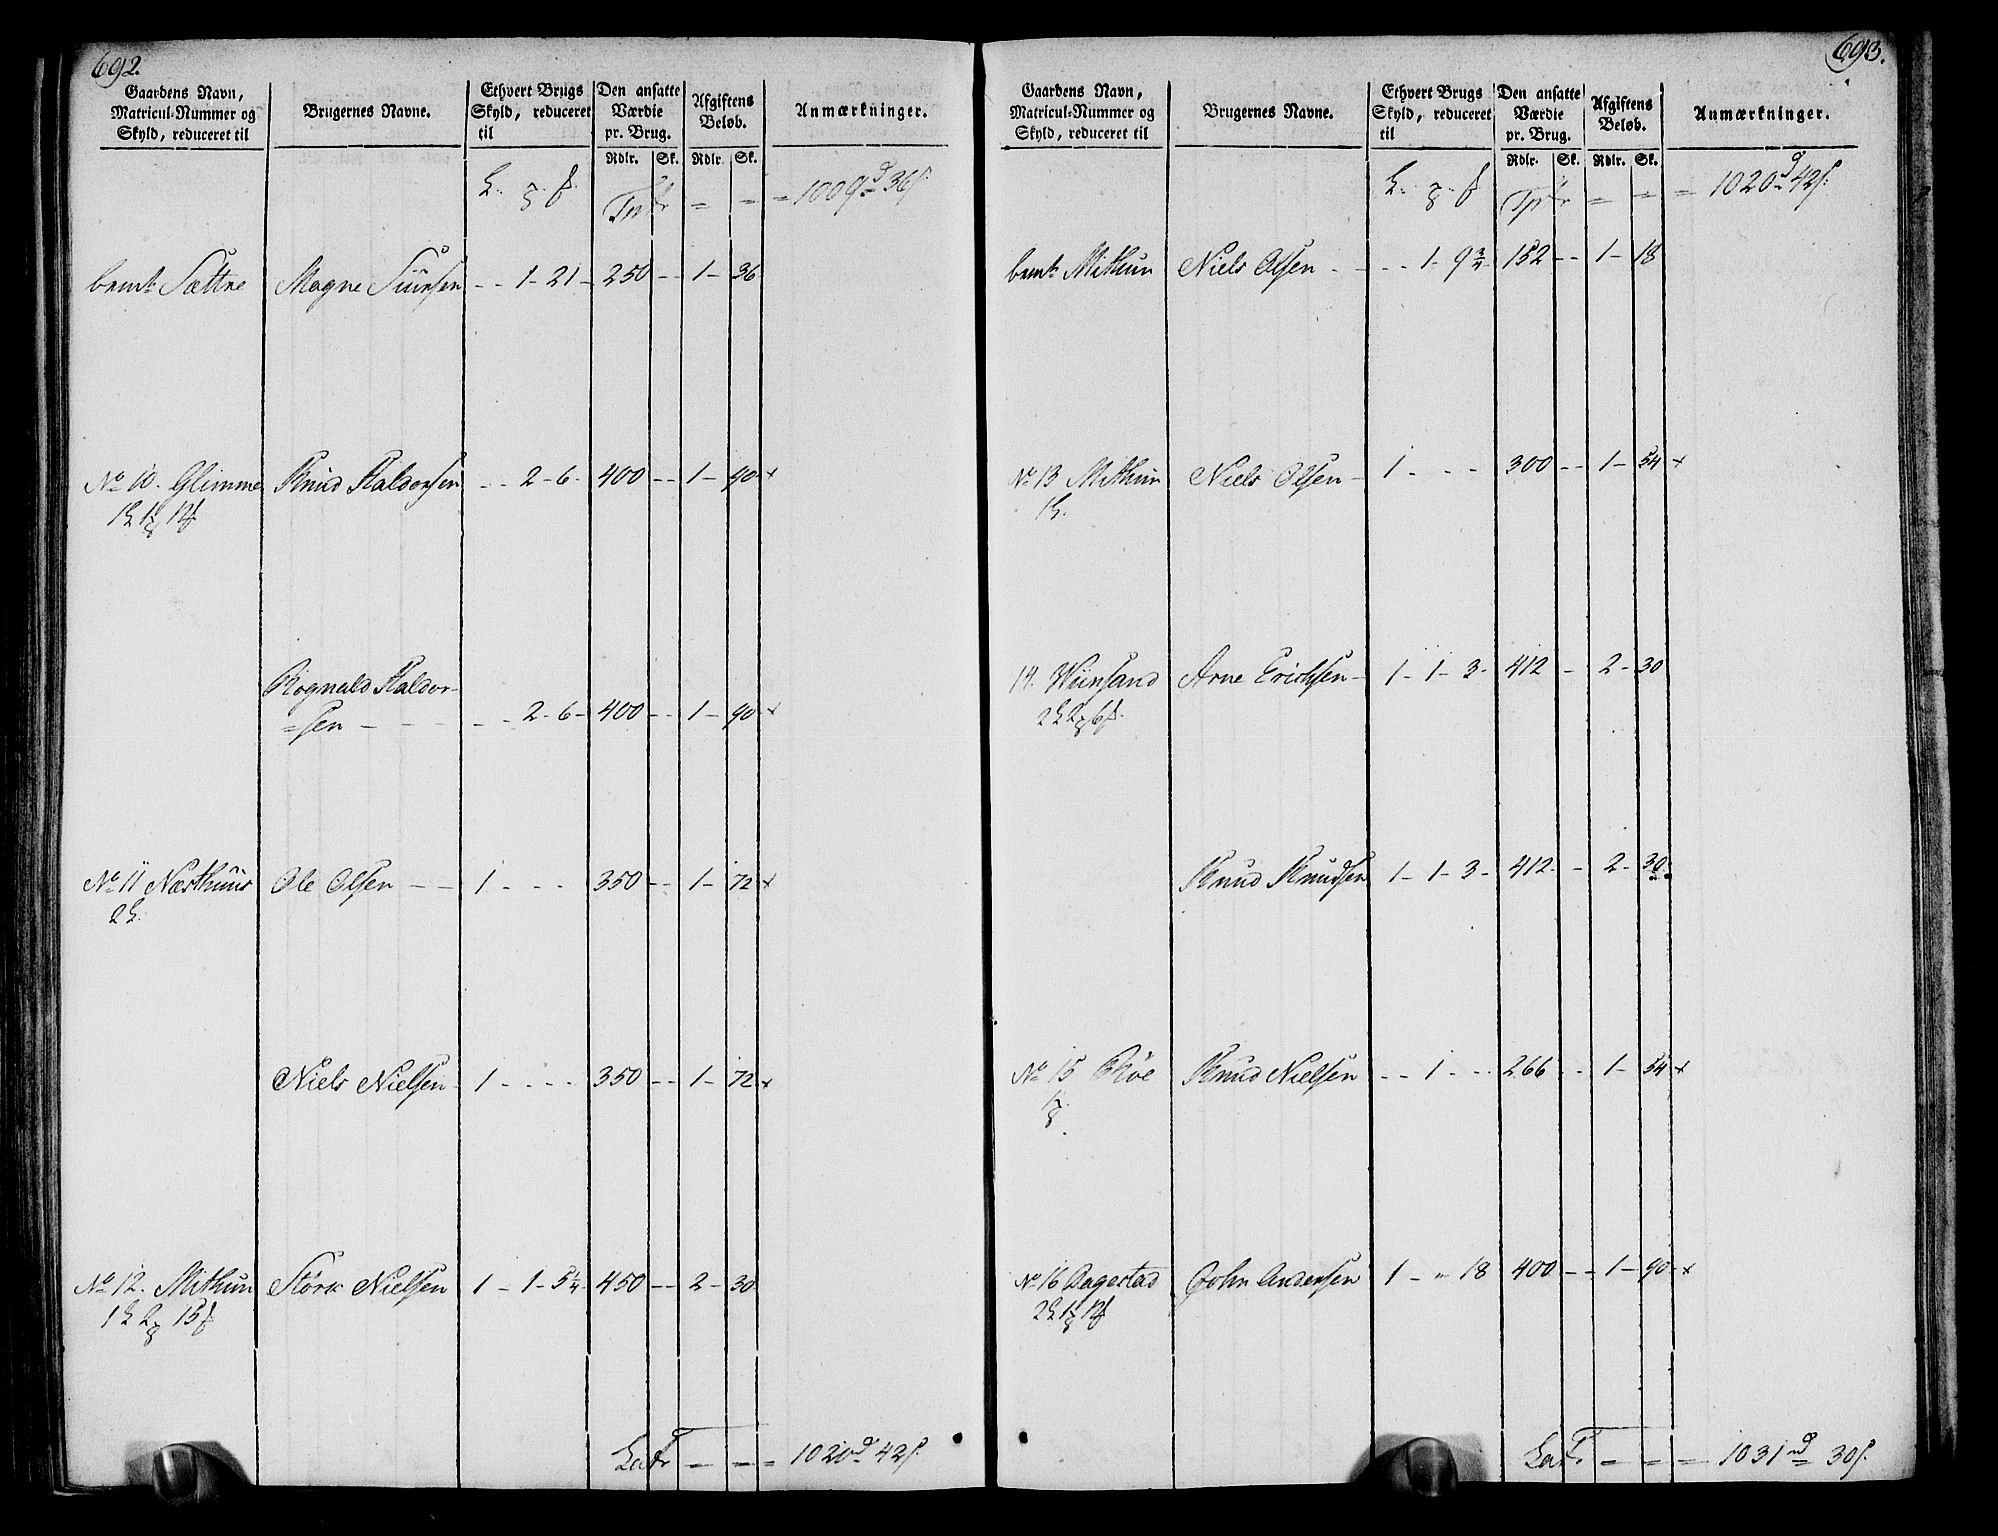 692.
Gaardens Navn, Matricul-Nummer og Skyld, reduceret til | Brugernes Navne. | Ethvert Brugs Skyld, reduceret til | Den ansatte Værdie pr. Brug. | Afgiftens Beløb. | Anmærkninger.
Rdlr. Sk. Rdlr. Sk.
= = = 1009 d 36 s.
bemt Sættre Magne Siursen - - 1 - 21 - 250 - - 1 - 36
No 10. Glimme Knud Haldorsen - - 2 - 6 - 400 - - 1 - 90 x
Rognald Haldor-
=sen - - - - - 2 - 6 - 400 - - 1 - 90 x
No 11 Næsthuus Ole Olsen - - 1 - - - 350 - - 1 - 72 x
Niels Nielsen - 1 - - - - 350 - - 1 - 72 x
No 12. Mithun Størk Nielsen 1 - 1 - 5 1/4 450 - - 2 - 30
Lat. = = = 1020 d 42 s.
693.
Gaardens Navn, Matricul-Nummer og Skyld, reduceret til | Brugernes Navne. | Ethvert Brugs Skyld, reduceret til | Den ansatte Værdie pr. Brug. | Afgiftens Beløb. | Anmærkninger.
Rdlr. Sk. Rdlr. Sk.
= = = 1020 d 42 s.
bemt Mithun Niels Olsen - - - 1 - 9 3/4 152 - - 1 - 18
No 13 Mithun Niels Olsen - 1 - - - 300 - - 1 - 54 x
14. Wiinsand Arne Erichsen - 1 - 1 - 3 - 412 - 2 - 30
Knud Knudsen 1 - 1 - 3 - 412 - 2 - 30
No 15 Røe Knud Nielsen - - 1 - - - 266 - - 1 - 54 x
No 16 Dagestad John Andersen 1 - " 18 400 - - 1 - 90 x
Lat. = = = 1031 d 30 s.